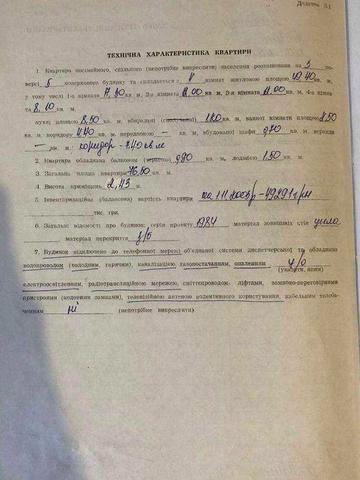 Додаток 31
ТЕХНІЧНА ХАРАКТЕРИСТИКА КВАРТИРИ
1. Квартира посімейного, спільного (непотрібне викреслити) населення розташована на 3 по-
версі 5 поверхового будинку та складається з 4 кімнат житловою площею кв. м,
у тому числі 1-а кімната кв. м, 2-а кімната кв. м, 3-я кімната кв. м, 4-а кімна-
та 8,10 кв. м,
кухні площею 8,50 кв. м, вбиральні кв. м, ванної кімнати площею
кв. м, коридору 4,40 кв. м, передпокою — кв. м, вбудованої шафи 0,90 кв. м,
— кв. м: коридор - 2,40 кв м
2. Квартира обладнана балконом 0,90 кв. м, лоджією 1,50 кв. м.
3. Загальна площа квартири 76,50 кв. м.
4. Висота приміщень 2,45
5. Інвентаризаційна (балансова) вартість квартири
тис. грн.
6. Загальні відомості про будинок: серія проекту 1984 матеріал зовнішніх стін цегла
матеріал перекриття з/б
7. Будинок підключено до телефонної мережі, об'єднаної системи диспетчерської та обладнано
водопроводом (холодним, гарячим), каналізацією, газопостачанням, опаленням ц/о
електроосвітленням, радіотрансляційною мережею, сміттєпроводом, ліфтами, замково-переговорними
пристроями (кодовими замками), телевізійною антеною колективного користування, кабельним телеба-
ченням ні (непотрібне викреслити).